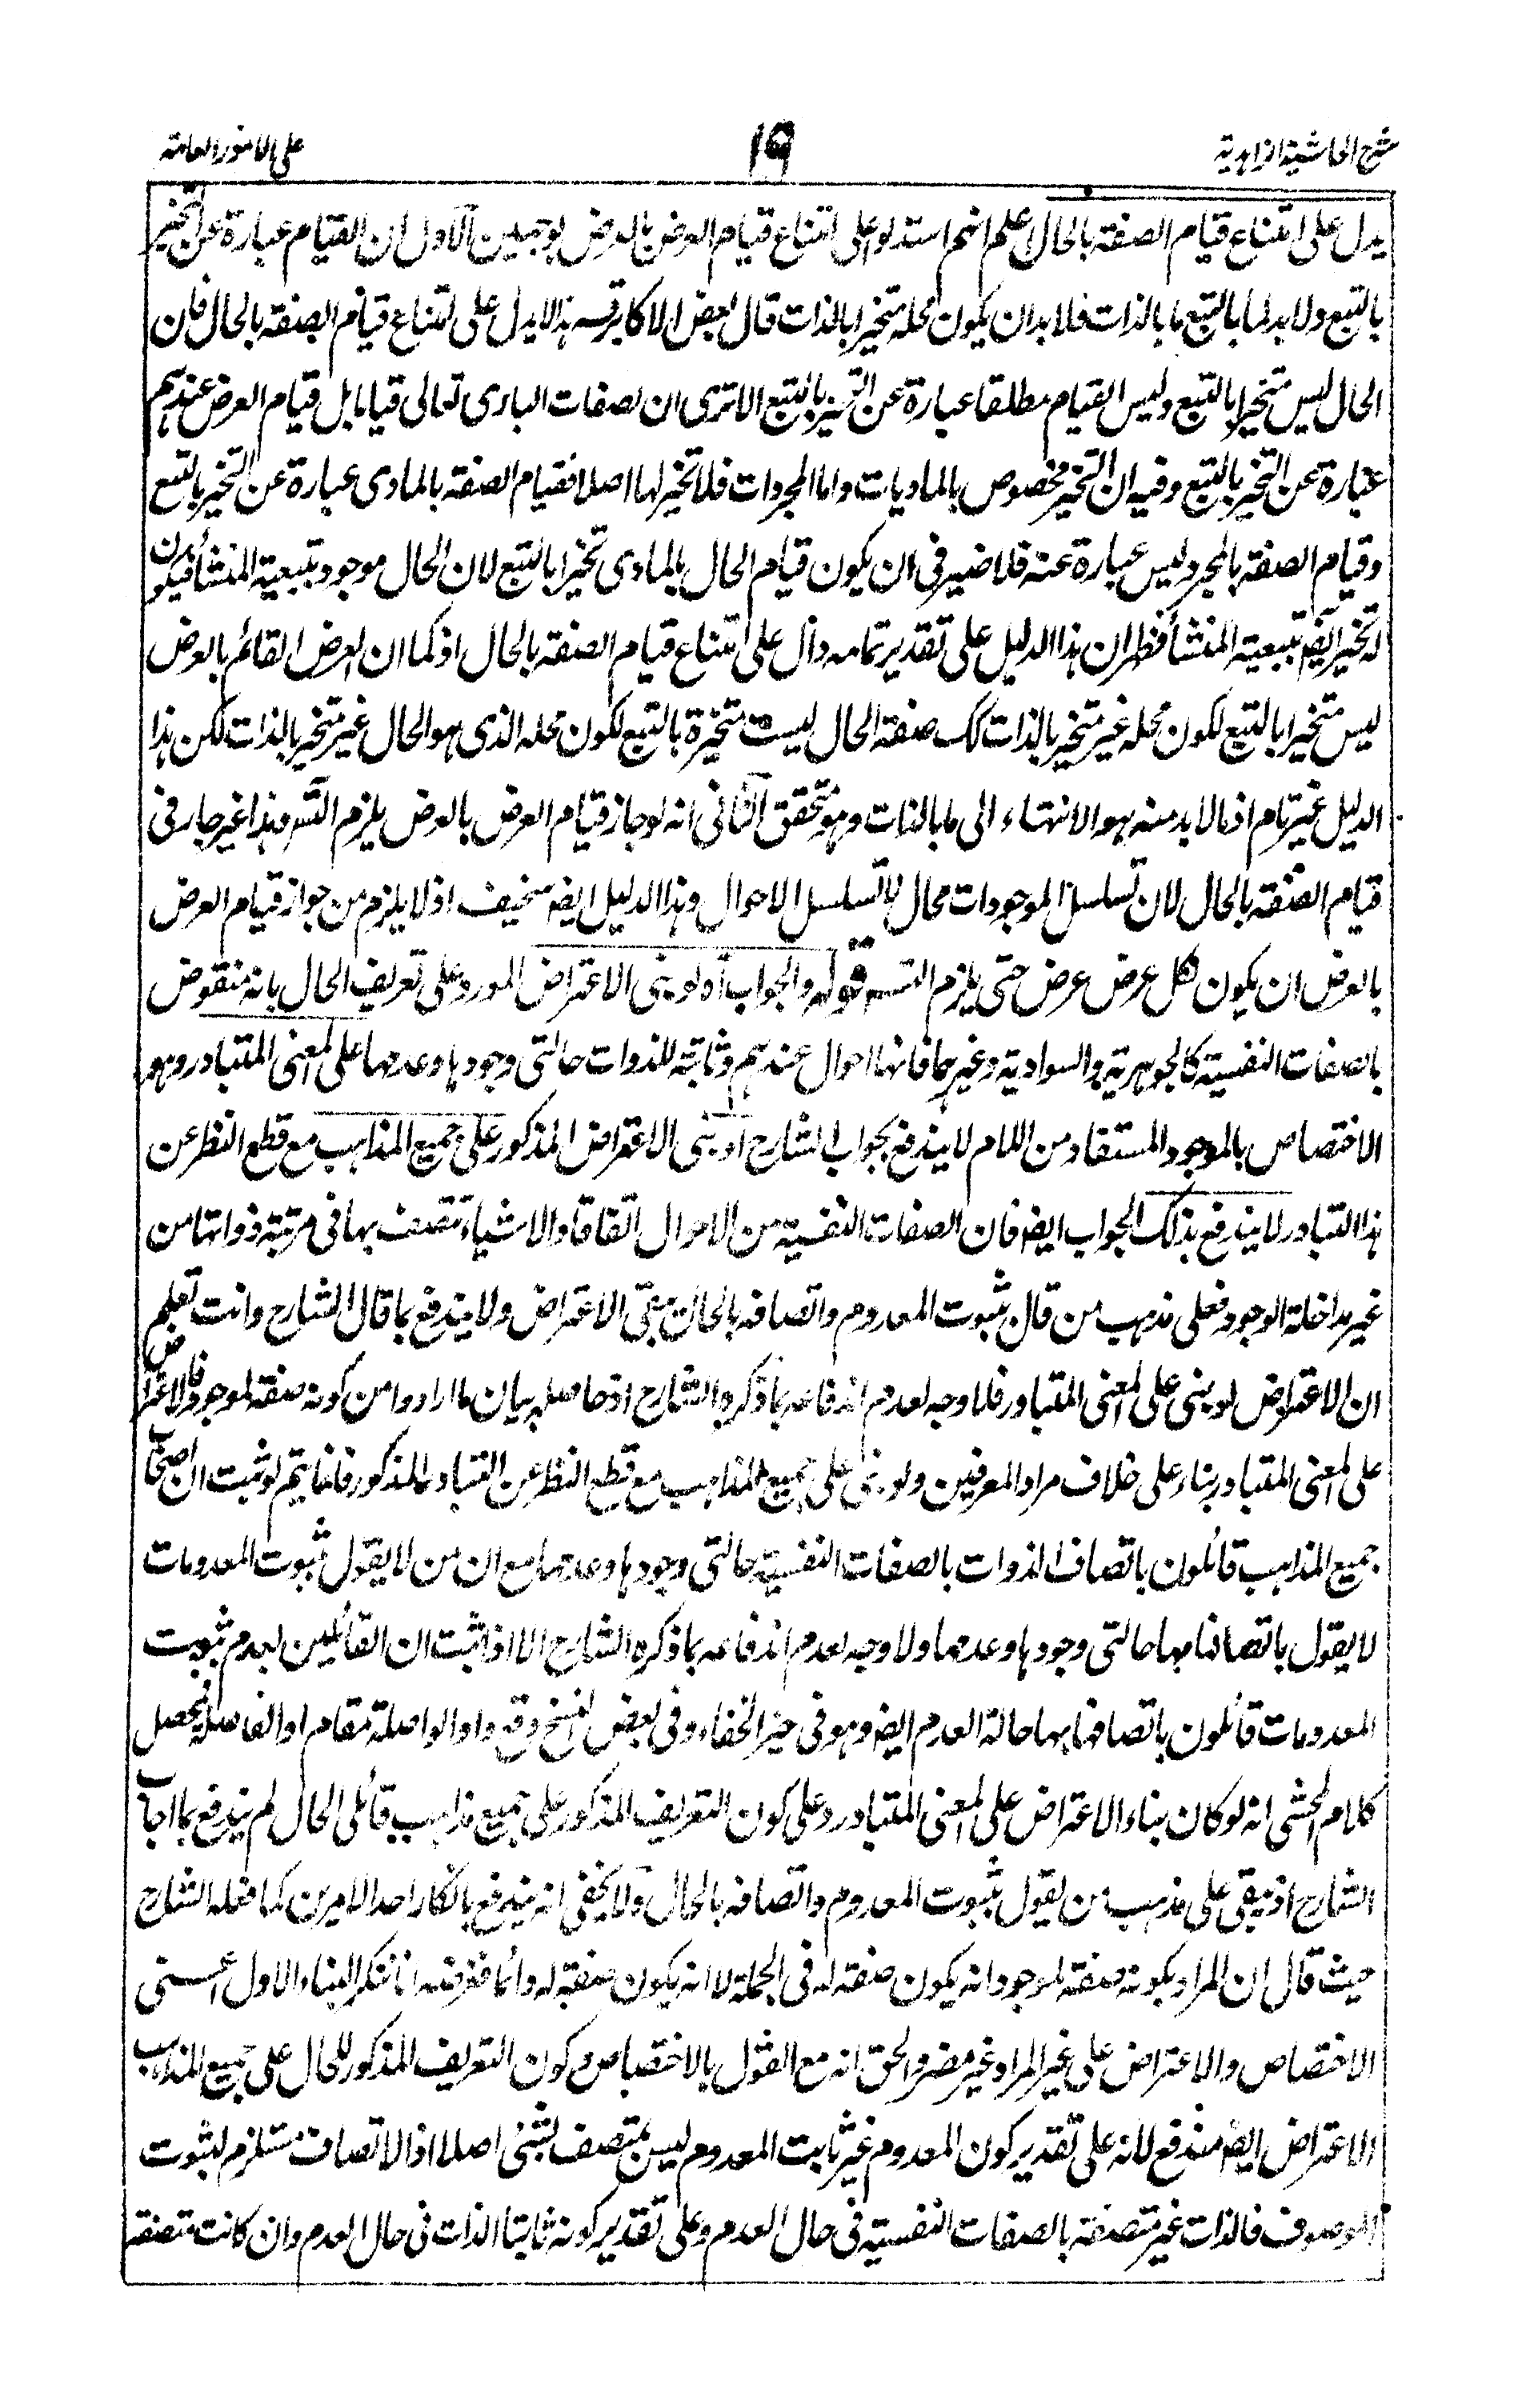 شرح الحاشية الزاهدية
١٩
على الامور العامة
يدل على امتناع قيام الصفة بالحال اعلم انهم استدلوا على امتناع قيام العرض بالعرض بوجهين الاول ان القيام عبارة عن التحيز
بالتبع ولا بد لما بالتبع ما بالذات فلا بد ان يكون محله متحيزا بالذات قال بعض الاكابر قسه هذا لا يدل على امتناع قيام الصفة بالحال فان
الحال ليس متحيزا بالتبع وليس القيام مطلقا عبارة عن التحيز بالتبع الا ترى ان لصفات البارى تعالى قياما بل قيام العرض عندهم
عبارة عن التحيز بالتبع وفيه ان التحيز مخصوص بالماديات واما المجردات فلا تحيز لها اصلا فقيام الصفة بالمادى عبارة عن التحيز بالتبع
وقيام الصفة بالمجرد ليس عبارة عنه فلا ضير فى ان يكون قيام الحال بالمادى تحيزا بالتبع لان الحال موجود بتبعية المنشأ فيكون
له تحيز ايضا بتبعية المنشأ فظهر ان هذا الدليل على تقدير تمامه دال على امتناع قيام الصفة بالحال اذ كما ان العرض القائم بالعرض
ليس متحيزا بالتبع لكون محله غير متحيز بالذات كك صفة الحال ليست متحيزة بالتبع لكون محله الذى هو الحال غير متحيز بالذات لكن هذا
الدليل غير تام اذ ما لا بد منه هو الانتهاء الى ما بالذات وهو متحقق الثانى انه لو جاز قيام العرض بالعرض يلزم التسه وهذا غير جار فى
قيام الصفة بالحال لان تسلسل الموجودات محال لا تسلسل الاحوال وهذا الدليل ايضا سخيف اذ لا يلزم من جواز قيام العرض
بالعرض ان يكون لكل عرض عرض حتى يلزم التسه قوله والجواب آه لو بنى الاعتراض المورد على تعريف الحال بانه منقوض
بالصفات النفسية كالجوهرية والسوادية وغيرهما فانها احوال عندهم وثابتة للذوات حالتى وجودها وعدمها على المعنى المتبادر وهو
الاختصاص بالموجود المستفاد من اللام لا يندفع بجواب الشارح او بنى الاعتراض المذكور على جميع المذاهب مع قطع النظر عن
هذا التبادر لا يندفع بذلك الجواب ايضا فان الصفات النفسية من الاحوال اتفاقا والاشياء تتصف بها فى مرتبة ذواتها من
غير مداخلة الوجود فعلى مذهب من قال بثبوت المعدوم واتصافه بالحال يبقى الاعتراض ولا يندفع بما قال الشارح وانت تعلم
ان الاعتراض لو بنى على المعنى المتبادر فلا وجه لعدم اندفاعه بما ذكره الشارح اذ حاصله بيان ما ارادوا من كونه صفة لموجود فالاعتراض
على المعنى المتبادر بناء على خلاف مراد المعرفين ولو بنى على جميع المذاهب مع قطع النظر عن التبادر المذكور فانما يتم لو ثبت ان اصحاب
جميع المذاهب قائلون باتصاف الذوات بالصفات النفسية حالتى وجودها وعدمها مع ان من لا يقول بثبوت المعدومات
لا يقول باتصافها بها حالتى وجودها وعدمها ولا وجه لعدم اندفاعه بما ذكره الشارح الا اذا ثبت ان القائلين بعدم ثبوت
المعدومات قائلون باتصافها بها حالة العدم ايضا وهو فى حيز الخفاء وفى بعض النسخ وقع واو الواصلة مقام او الفاصلة فيحصل
كلام المحشى انه لو كان بناء الاعتراض على المعنى المتبادر وعلى كون التعريف المذكور على جميع مذاهب قائلى الحال لم يندفع بما اجاب
الشارح اذ يبقى على مذهب من يقول بثبوت المعدوم واتصافه بالحال ولا يخفى انه يندفع بانكار احد الامرين كما فعله الشارح
حيث قال ان المراد بكونه صفة لموجود انه يكون صفة له فى الجملة لا انه يكون صفة له دائما فغرضه انا ننكر البناء الاول اعنى
الاختصاص والاعتراض على غير المراد غير مضر والحق انه مع القول بالاختصاص وكون التعريف المذكور للحال على جميع المذاهب
الاعتراض ايضا مندفع لانه على تقدير كون المعدوم غير ثابت المعدوم ليس بمتصف بشئ اصلا اذ الاتصاف مستلزم لثبوت
الموصوف فالذات غير متصفة بالصفات النفسية فى حال العدم وعلى تقدير كونه ثابتا الذات فى حال العدم وان كانت متصفة